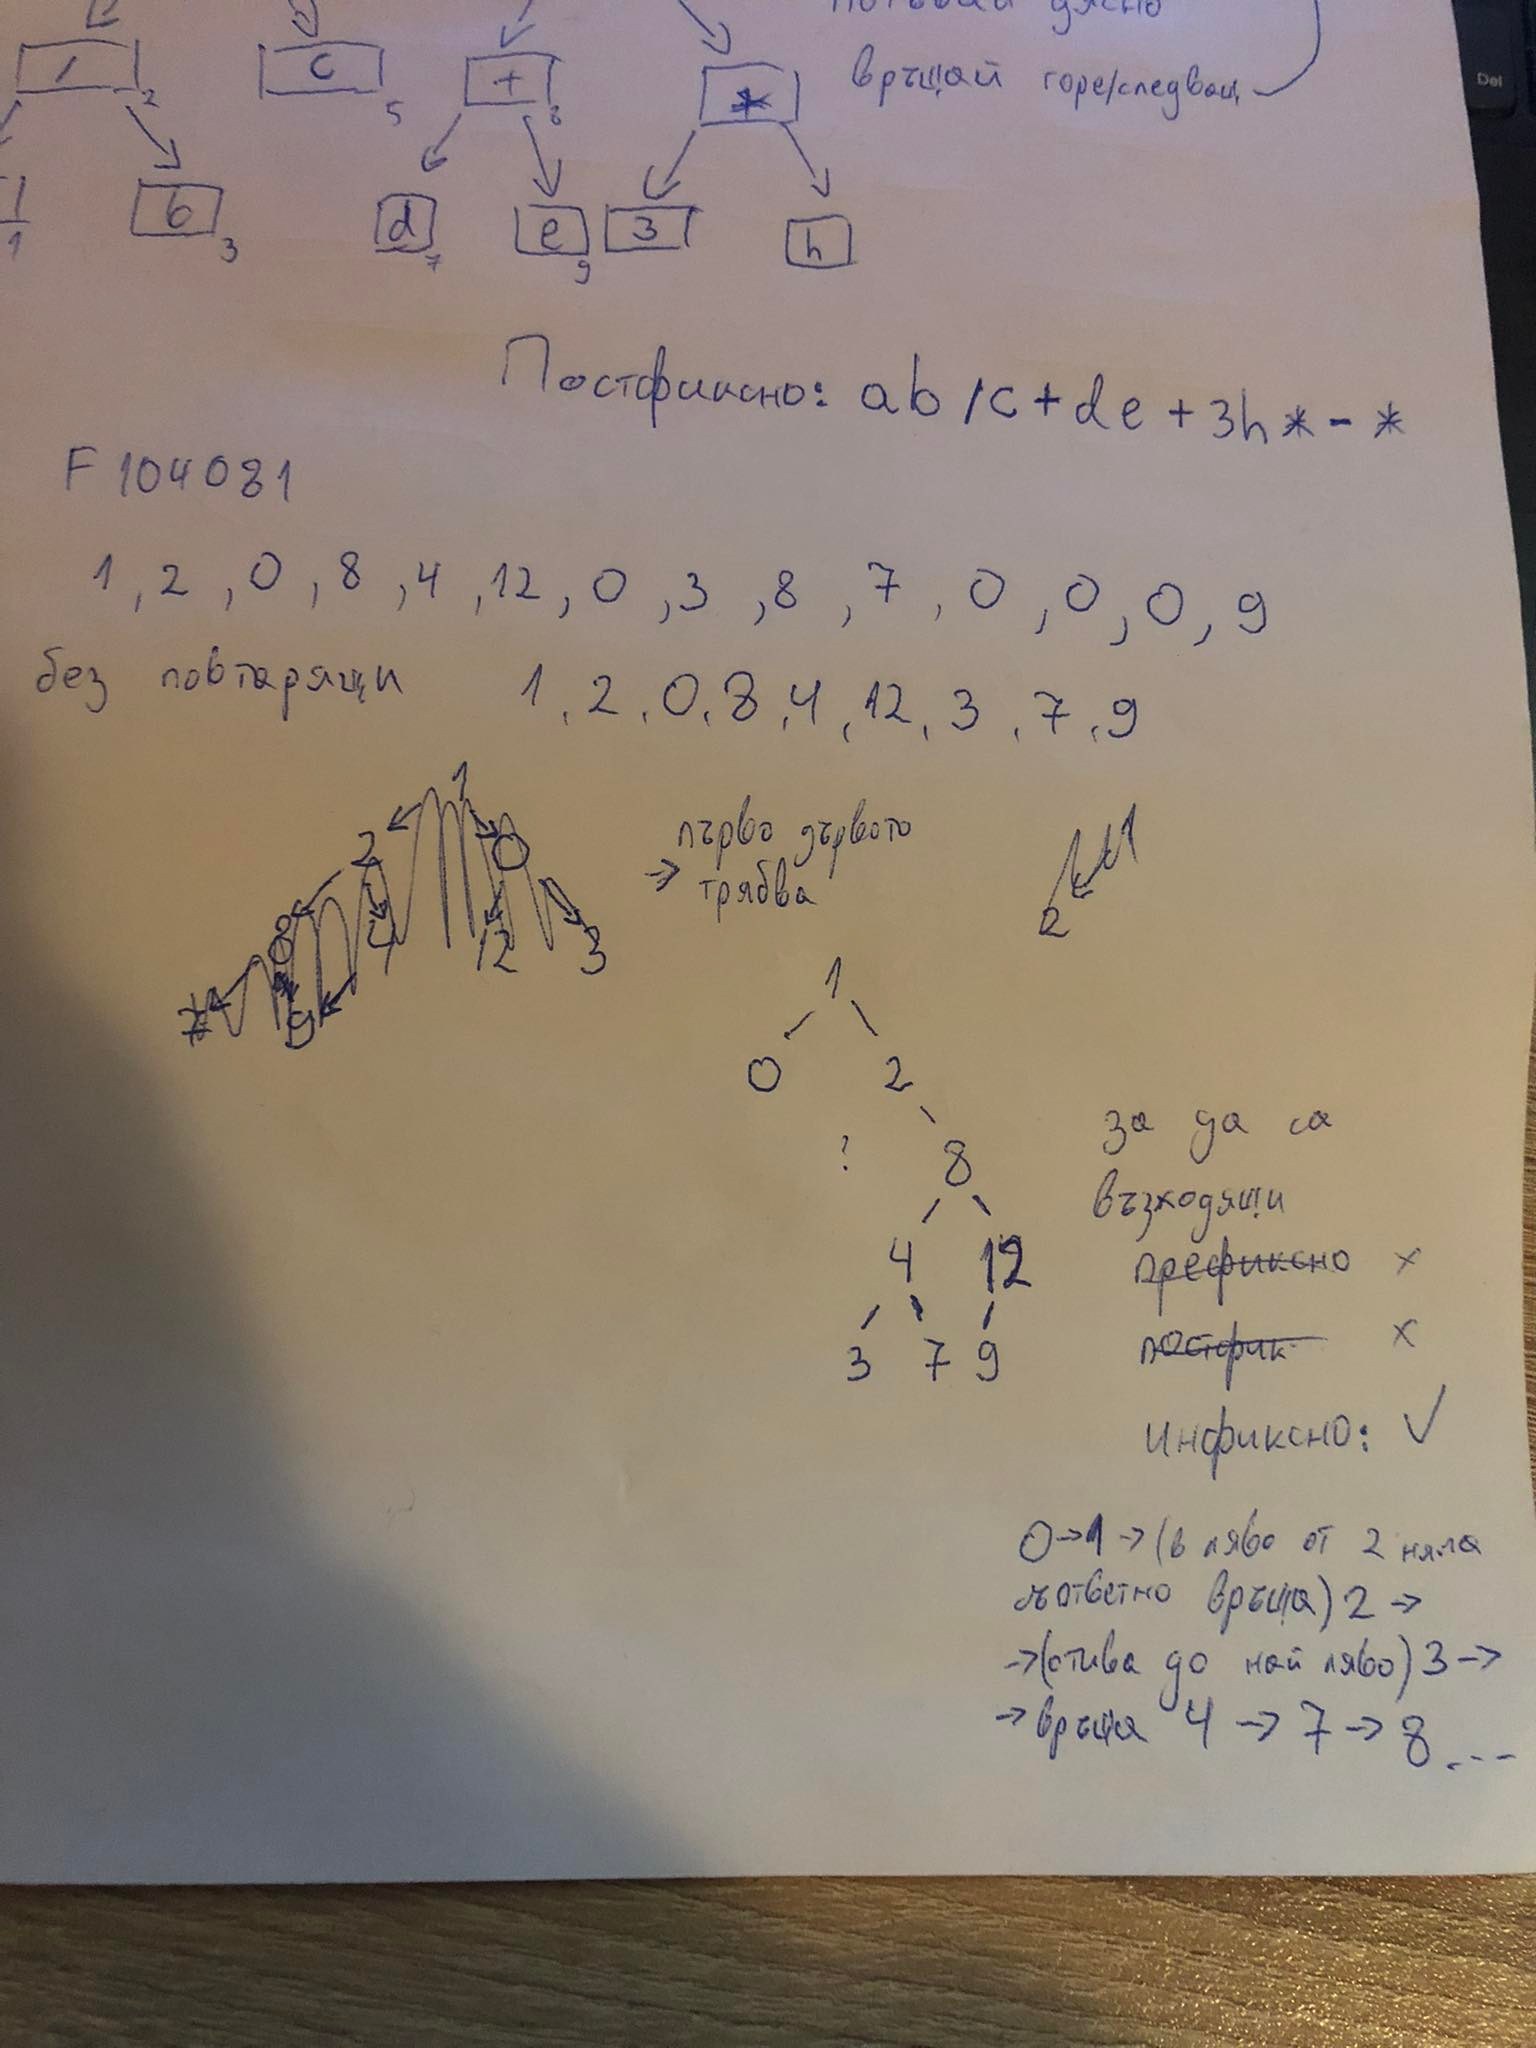 дясно
връщай горе/следващ
Del
/ 2
c 5
+ 8
*
1
b 3
d 7
e 9
3
h
Постфиксно: ab/c+de+3h*-*
F104081
1, 2, 0, 8, 4, 12, 0, 3, 8, 7, 0, 0, 0, 9
без повтарящи 1, 2, 0, 8, 4, 12, 3, 7, 9
1
2 0
8 4 12 3
7 9
→ първо дървото
трябва
1
2
1
0 2
? 8
4 12
3 7 9
за да са
възходящи
префиксно x
постфик x
инфиксно: ✓
0→1→(в ляво от 2 няма
съответно връща) 2→
→(отива до най ляво) 3→
→връща 4→7→8...